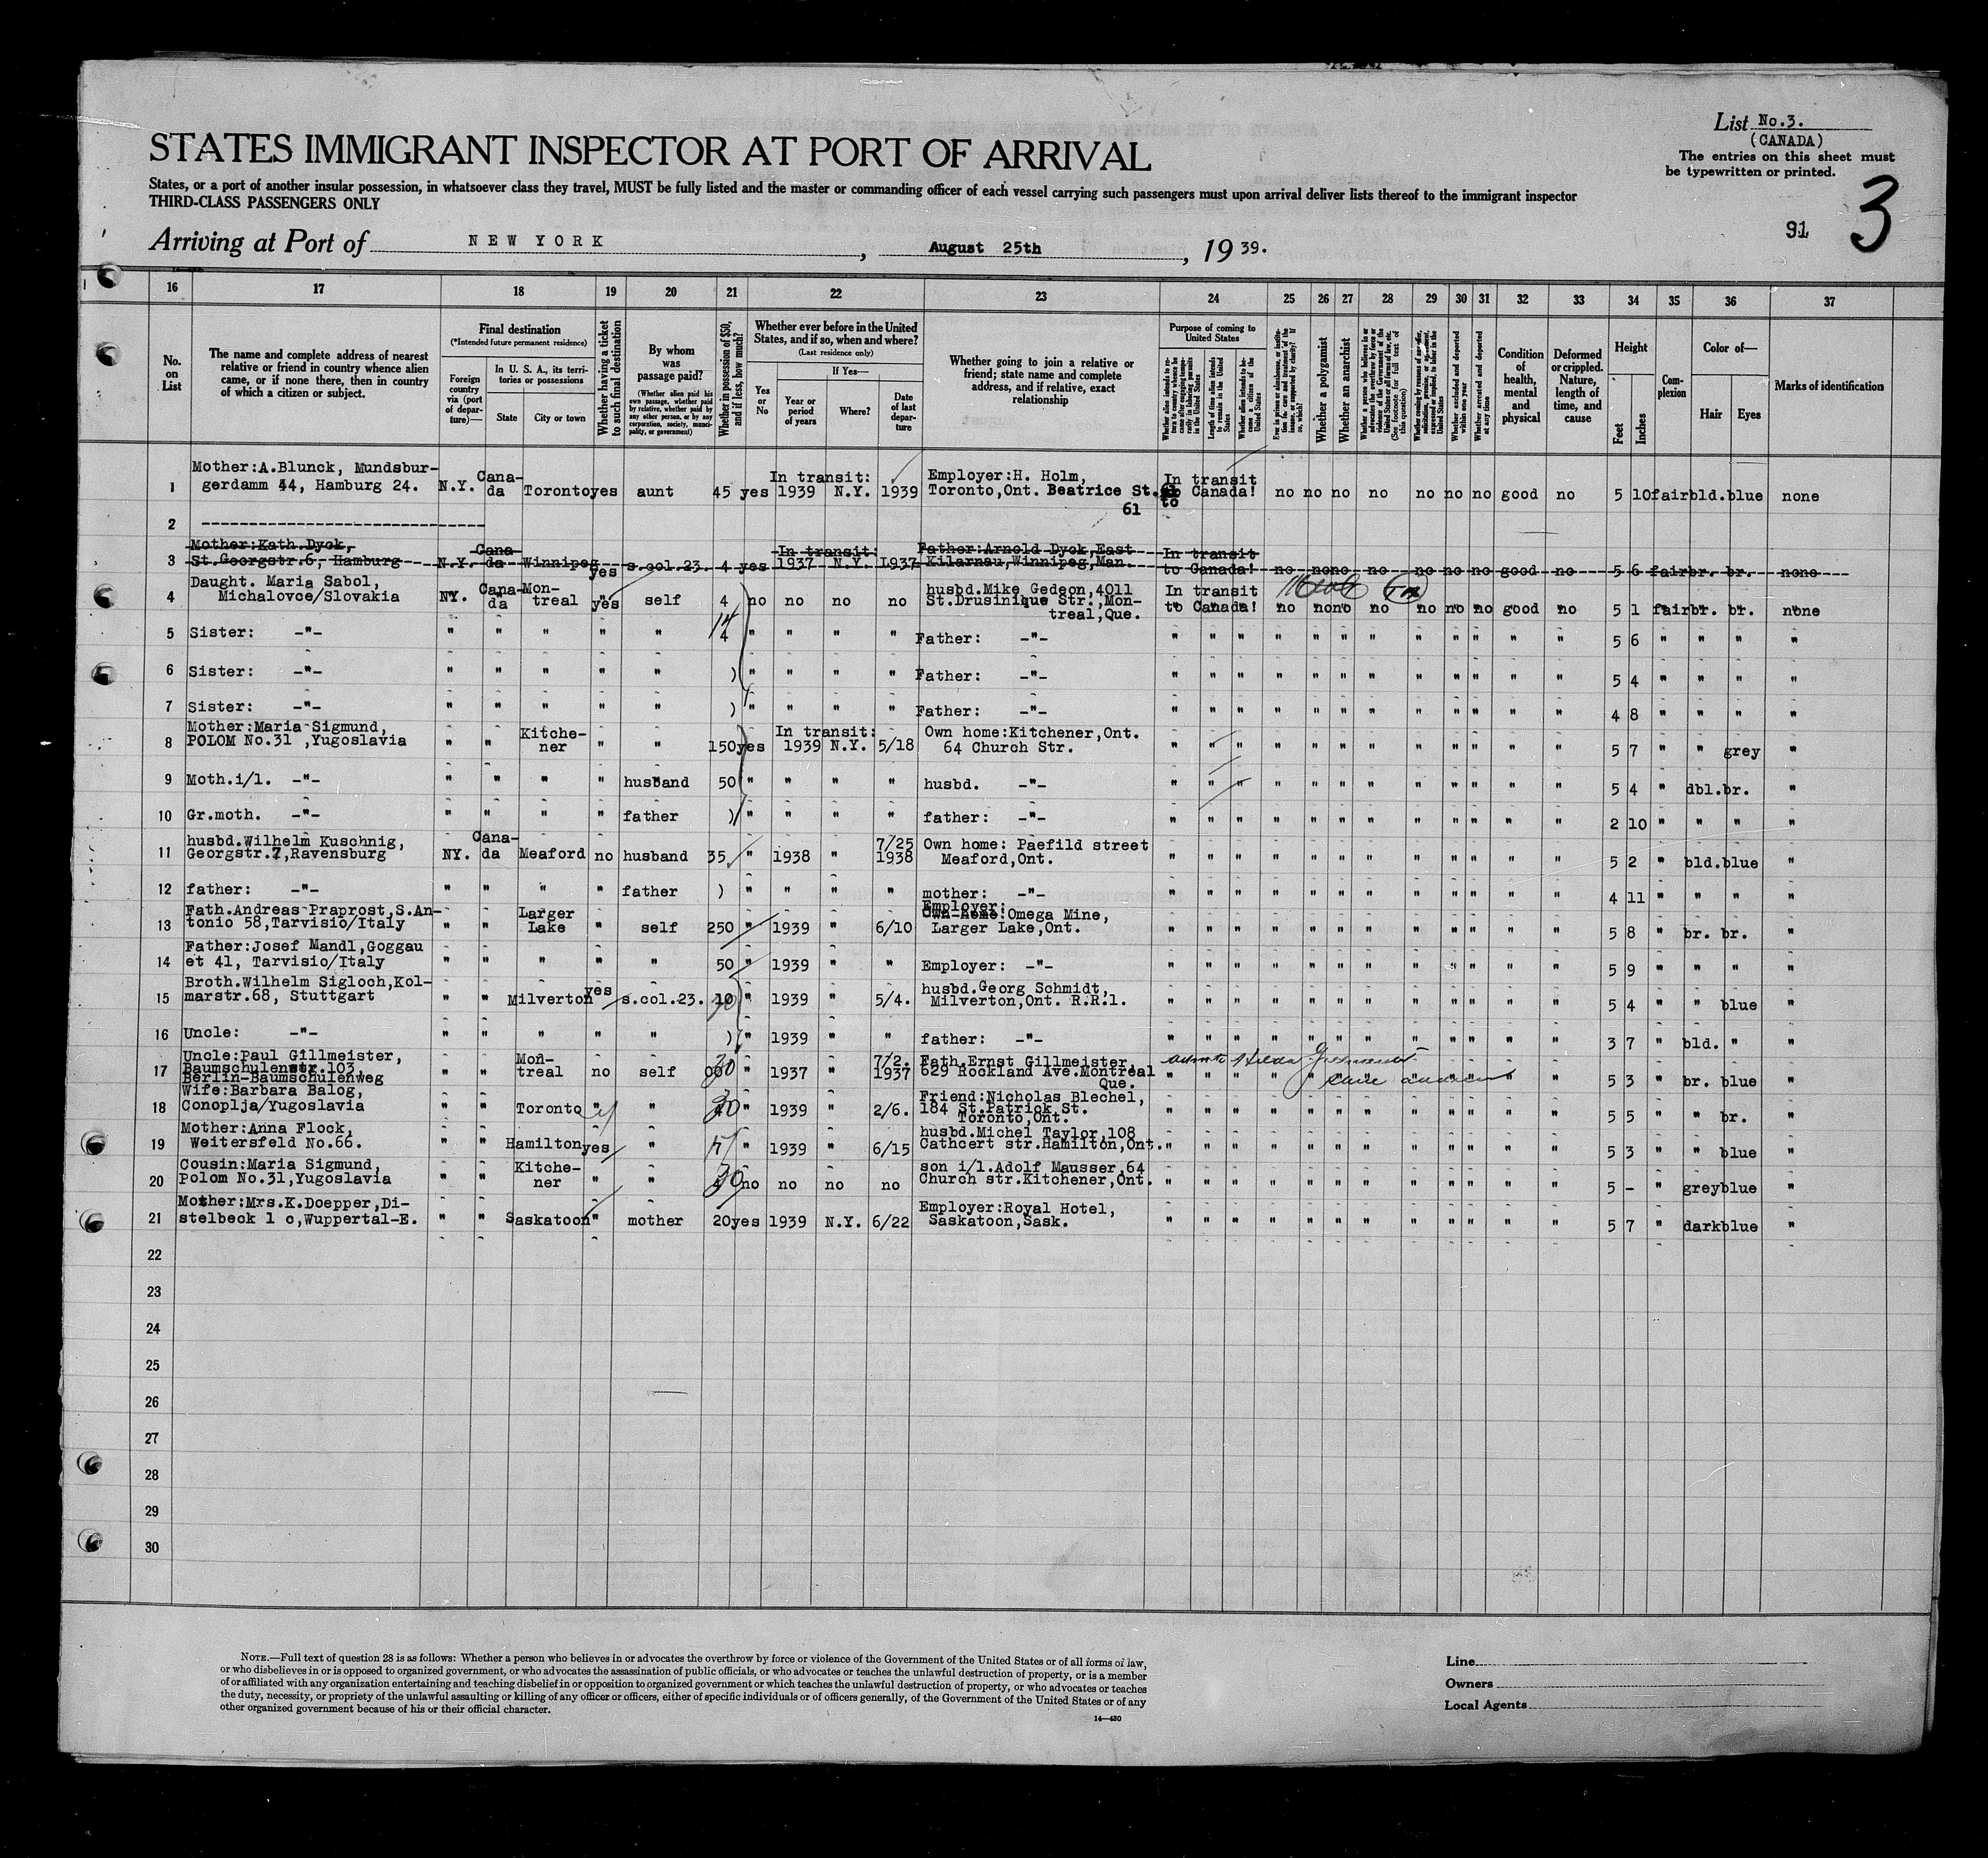 List No.3.
(CANADA)
The entries on this sheet must
be typewritten or printed.
STATES IMMIGRANT INSPECTOR AT PORT OF ARRIVAL
States, or a port of another insular possession, in whatsoever class they travel, MUST be fully listed and the master or commanding officer of each vessel carrying such passengers must upon arrival deliver lists thereof to the immigrant inspector
THIRD-CLASS PASSENGERS ONLY
91 3
Arriving at Port of NEW YORK, August 25th, 1939.
16 17 18 19 20 21 22 23 24 25 26 27 28 29 30 31 32 33 34 35 36 37
No. on List
The name and complete address of nearest relative or friend in country whence alien came, or if none there, then in country of which a citizen or subject.
Final destination
(*Intended future permanent residence)
Foreign country via (port of departure)—
In U. S. A., its territories or possessions
State
City or town
Whether having a ticket to such final destination
By whom was passage paid?
(Whether alien paid his own passage, whether paid by relative, whether paid by any other person, or by any corporation, society, municipality, or government)
Whether in possession of $50, and if less, how much?
Whether ever before in the United States, and if so, when and where?
(Last residence only)
Yes or No
If Yes—
Year or period of years
Where?
Date of last departure
Whether going to join a relative or friend; state name and complete address, and if relative, exact relationship
Purpose of coming to United States
Length of time alien intends to remain in the United States
Whether alien intends to become a citizen of the United States
Whether a polygamist
Whether an anarchist
(See footnote for full text of this question)
Whether excluded and deported within one year
Whether arrested and deported at any time
Condition of health, mental and physical
Deformed or crippled. Nature, length of time, and cause
Height
Feet
Inches
Complexion
Color of—
Hair
Eyes
Marks of identification
1 Mother:A.Blunck, Mundsburgerdamm 44, Hamburg 24. N.Y. Canada Toronto yes aunt 45 yes In transit: 1939 N.Y. 1939 Employer:H. Holm, Toronto,Ont. Beatrice St. 61 In transit to Canada! no no no no no no no good no 5 10 fair bld. blue none
2 ------------------------------
3 Mother:Kath.Dyck, St.Georgstr.6, Hamburg N.Y. Canada Winnipeg yes s.col.23. 4 yes In transit: 1937 N.Y. 1937 Father:Arnold Dyck,East Kilarnau,Winnipeg,Man. In transit to Canada! no no no no no no no good no 5 6 fair br. br. none
4 Daught. Maria Sabol, Michalovce/Slovakia NY. Canada Montreal yes self 4 no no no no husbd.Mike Gedeon,4011 St.Drusinique Str.,Montreal,Que. In transit to Canada! no no no no no no no good no 5 1 fair br. br. none
5 Sister: -"- " " " " " 4 " " " " Father: -"- " " " " " " " " " " " " 5 6 " " " "
6 Sister: -"- " " " " " ) " " " " Father: -"- " " " " " " " " " " " " 5 4 " " " "
7 Sister: -"- " " " " " ) " " " " Father: -"- " " " " " " " " " " " " 4 8 " " " "
8 Mother:Maria Sigmund, POLOM No.31 ,Yugoslavia " " Kitchener " " 150 yes In transit: 1939 N.Y. 5/18 Own home:Kitchener,Ont. 64 Church Str. " " " " " " " " " " " " 5 7 " " grey "
9 Moth.i/l. -"- " " " " husband 50 " " " " husbd. -"- " " " " " " " " " " " " 5 4 " dbl. br. "
10 Gr.moth. -"- " " " " father ) " " " " father: -"- " " " " " " " " " " " " 2 10 " " " "
11 husbd.Wilhelm Kuschnig, Georgstr.7,Ravensburg NY. Canada Meaford no husband 35 " 1938 " 7/25 1938 Own home: Paefild street Meaford,Ont. " " " " " " " " " " " " 5 2 " bld. blue "
12 father: -"- " " " " father ) " " " " mother: -"- " " " " " " " " " " " " 4 11 " " " "
13 Fath.Andreas Praprost,S.Antonio 58,Tarvisio/Italy " " Larger Lake " self 250 " 1939 " 6/10 Employer: Own home:Omega Mine, Larger Lake,Ont. " " " " " " " " " " " " 5 8 " br. br. "
14 Father:Josef Mandl,Goggau et 41, Tarvisio/Italy " " " " " 50 " 1939 " " Employer: -"- " " " " " " " " " " " " 5 9 " " " "
15 Broth.Wilhelm Sigloch,Kolmarstr.68, Stuttgart " " Milverton yes s.col.23. 10 " 1939 " 5/4. husbd.Georg Schmidt, Milverton,Ont. R.R.1. " " " " " " " " " " " " 5 4 " " blue "
16 Uncle: -"- " " " " " ) " 1939 " " father: -"- " " " " " " " " " " " " 3 7 " bld. " "
17 Uncle:Paul Gillmeister, Baumschulenstr.103, Berlin-Baumschulenweg " " Montreal no self 30 " 1937 " 7/2. 1937 Fath.Ernst Gillmeister, 629 Rockland Ave.Montreal Que. " " " " " " " " " " " " 5 3 " br. blue "
18 Wife:Barbara Balog, Conoplja/Yugoslavia " " Toronto " " 30 " 1939 " 2/6. Friend:Nicholas Blechel, 184 St.Patrick St. Toronto,Ont. " " " " " " " " " " " " 5 5 " " br. "
19 Mother:Anna Flock, Weitersfeld No.66. " " Hamilton yes " " 1939 " 6/15 husbd.Michel Taylor,108 Cathcert str.Hamilton,Ont. " " " " " " " " " " " " 5 3 " " blue "
20 Cousin:Maria Sigmund, Polom No.31,Yugoslavia " " Kitchener " " 30 no no no no son i/l.Adolf Mausser,64 Church str.Kitchener,Ont. " " " " " " " " " " " " 5 - " grey blue "
21 Mother:Mrs.K.Doepper,Distelbeck 1 c,Wuppertal-E. " " Saskatoon " mother 20 yes 1939 N.Y. 6/22 Employer:Royal Hotel, Saskatoon,Sask. " " " " " " " " " " " " 5 7 " dark blue "
22
23
24
25
26
27
28
29
30
NOTE.—Full text of question 28 is as follows: Whether a person who believes in or advocates the overthrow by force or violence of the Government of the United States or of all forms of law,
or who disbelieves in or is opposed to organized government, or who advocates the assassination of public officials, or who advocates or teaches the unlawful destruction of property, or is a member
of or affiliated with any organization entertaining and teaching disbelief in or opposition to organized government or which teaches the unlawful destruction of property, or who advocates or teaches
the duty, necessity, or propriety of the unlawful assaulting or killing of any officer or officers, either of specific individuals or of officers generally, of the Government of the United States or of any
other organized government because of his or their official character.
14—430
Line
Owners
Local Agents